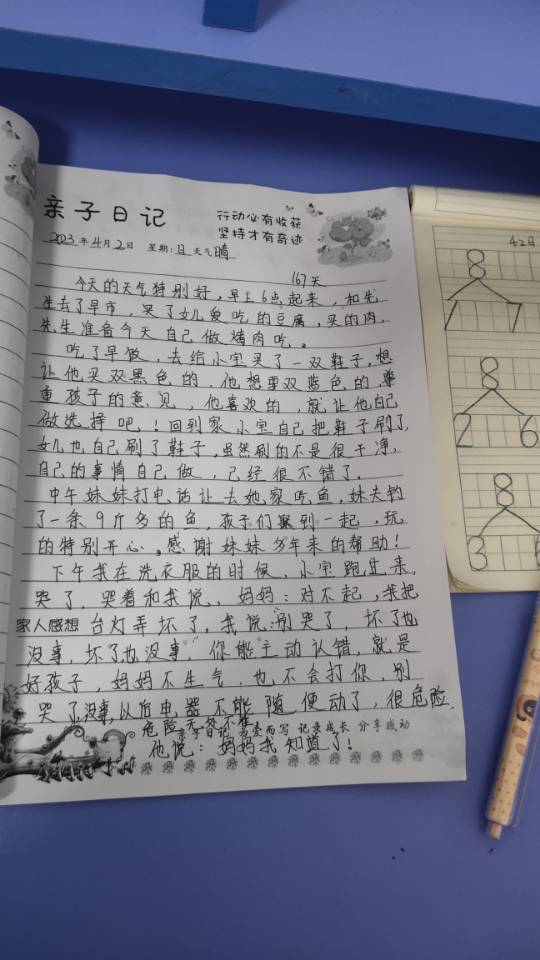 亲子日记
行动必有收获
坚持才有奇迹
2023年4月2日 星期:日 天气晴
167天
今天的天气特别好,早上6点起来,和先
生去了早市,买了女儿爱吃的豆腐,买的肉,
先生准备今天自己做烤肉吃。
吃了早饭,去给小宝买了一双鞋子,想
让他买双黑色的,他想要双蓝色的,尊
重孩子的意见,他喜欢的,就让他自己
做选择吧!回到家小宝自己把鞋子刷了,
女儿也自己刷了鞋子,虽然刷的不是很干净,
自己的事情自己做,已经很不错了。
中午妹妹打电话让去她家吃鱼,妹夫钓
了一条9斤多的鱼,孩子们聚到一起,玩
的特别开心。感谢妹妹多年来的帮助!
下午我在洗衣服的时候,小宝跑过来,
哭了,哭着和我说,妈妈:对不起,我把
家人感想 台灯弄坏了,我说,别哭了,坏了也
没事,坏了也没事,你能主动认错,就是
好孩子,妈妈不生气,也不会打你,别
哭了没事,以后电器不能随便动了,很危险,
危险
记录成长 分享感动
他说:妈妈我知道了!
4.2日
8
1 7
8
2 6
8
3